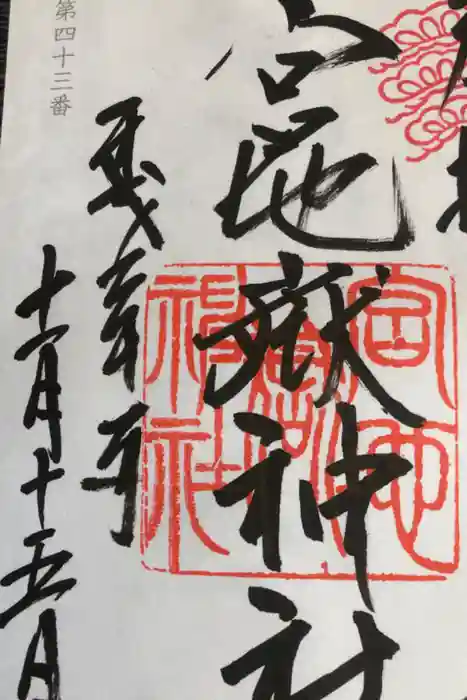 宮地嶽神社
宮地
嶽
神社
十一月十五日
第四十三番